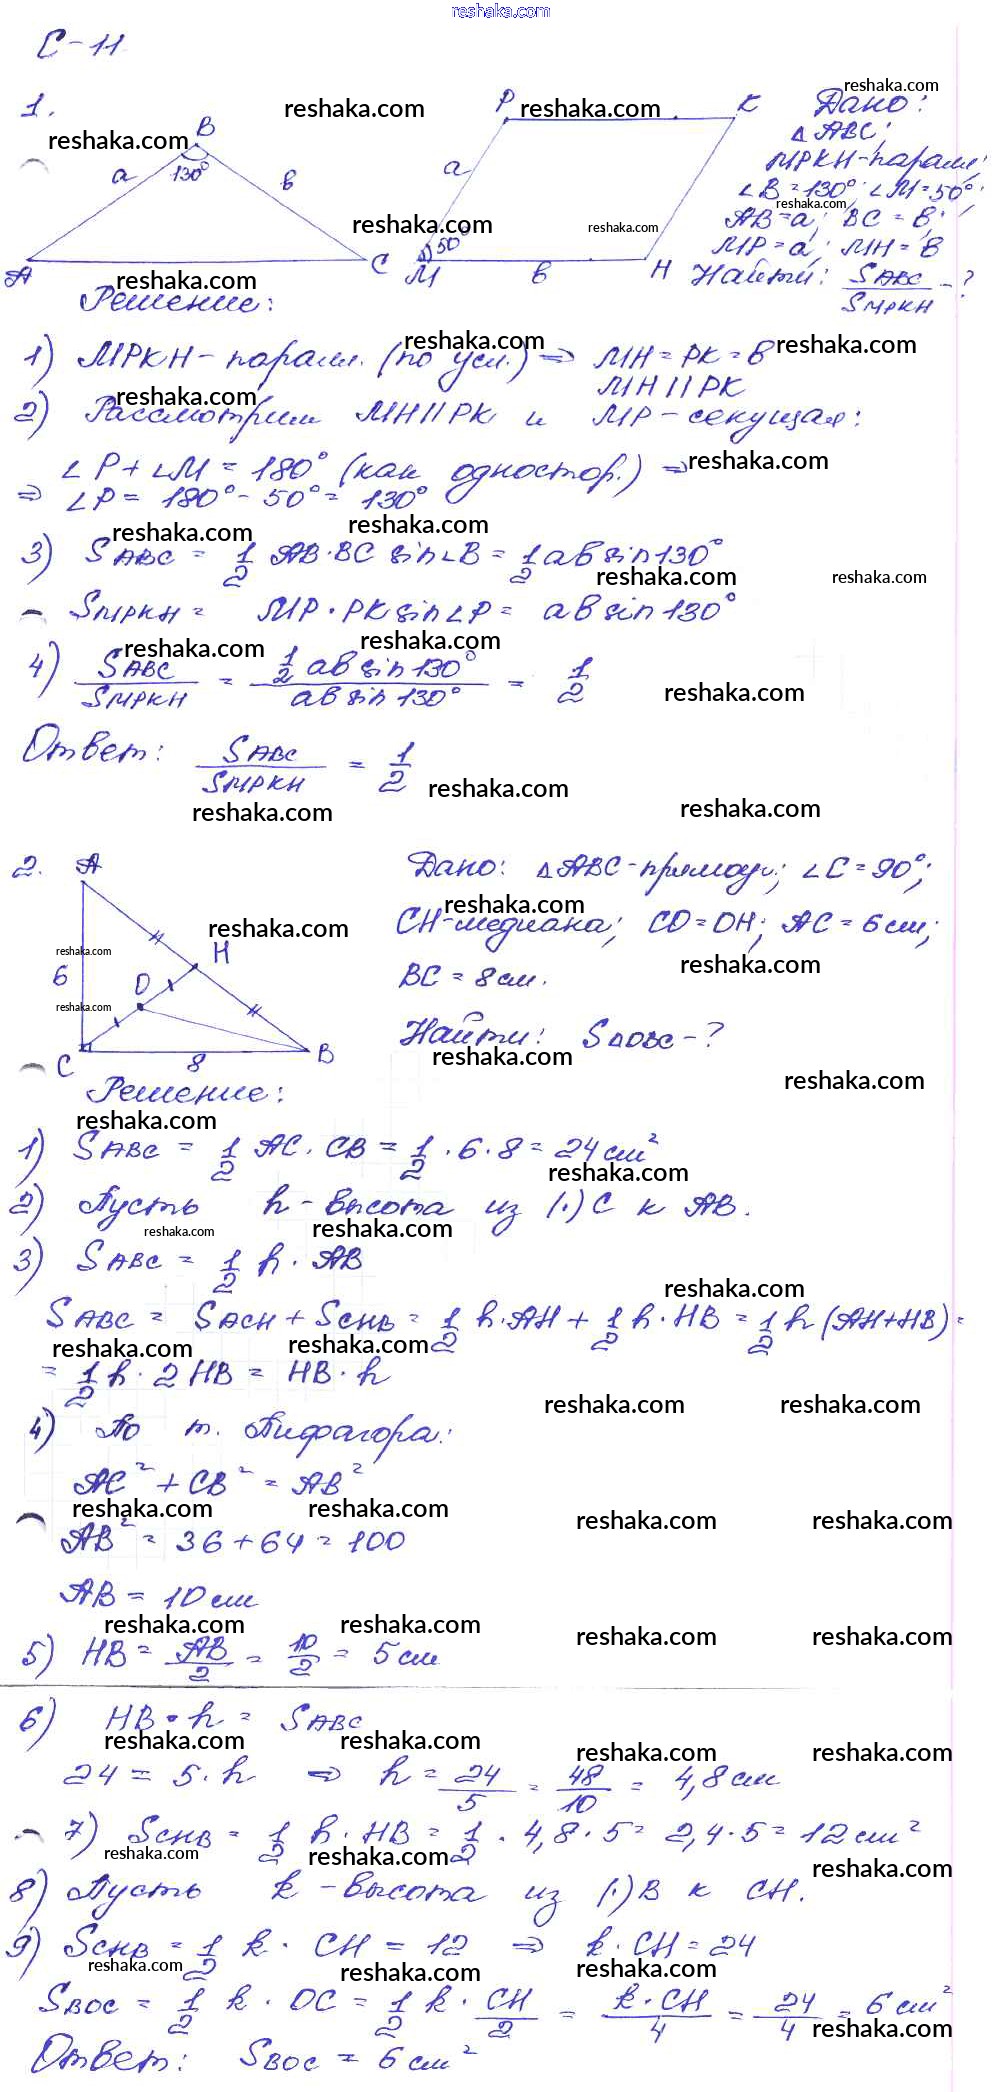 reshaka.com
С-11
1.
Дано:
△ABC;
МРКН-парал.;
∠B=130°; ∠M=50°;
AB=a; BC=в;
МР=a; МН=в
Найти: S ABC / S МРКН - ?
B
a 130° в
A C
P K
a
50°
M в H
Решение:
1) МРКН-парал. (по усл.) ⇒ МН=РК=в
МН||РК
2) Рассмотрим МН||РК и МР-секущая:
∠P+∠M=180° (как одностор.) ⇒
⇒ ∠P=180°-50°=130°
3) S ABC = 1/2 AB·BC sin∠B = 1/2 aв sin130°
S МРКН = МР·РК sin∠P = aв sin130°
4) S ABC / S МРКН = 1/2 aв sin130° / aв sin130° = 1/2
Ответ: S ABC / S МРКН = 1/2
2.
A
H
6 O
C 8 B
Дано: △ABC-прямоуг.; ∠C=90°;
CH-медиана; CO=OH; AC=6см;
BC=8см.
Найти: S △OBC - ?
Решение:
1) S ABC = 1/2 AC·CB = 1/2·6·8=24см²
2) Пусть h-высота из (·)C к AB.
3) S ABC = 1/2 h·AB
S ABC = S ACH + S CHB = 1/2 h·AH + 1/2 h·HB = 1/2 h(AH+HB) =
= 1/2 h·2HB = HB·h
4) По т. Пифагора:
AC²+CB²=AB²
AB²=36+64=100
AB=10см
5) HB = AB/2 = 10/2 = 5см
6) HB·h = S ABC
24=5·h ⇒ h = 24/5 = 48/10 = 4,8см
7) S CHB = 1/2 h·HB = 1/2·4,8·5=2,4·5=12см²
8) Пусть k-высота из (·)B к CH.
9) S CHB = 1/2 k·CH=12 ⇒ k·CH=24
S BOC = 1/2 k·OC = 1/2 k·CH/2 = k·CH/4 = 24/4 = 6см²
Ответ: S BOC = 6см²